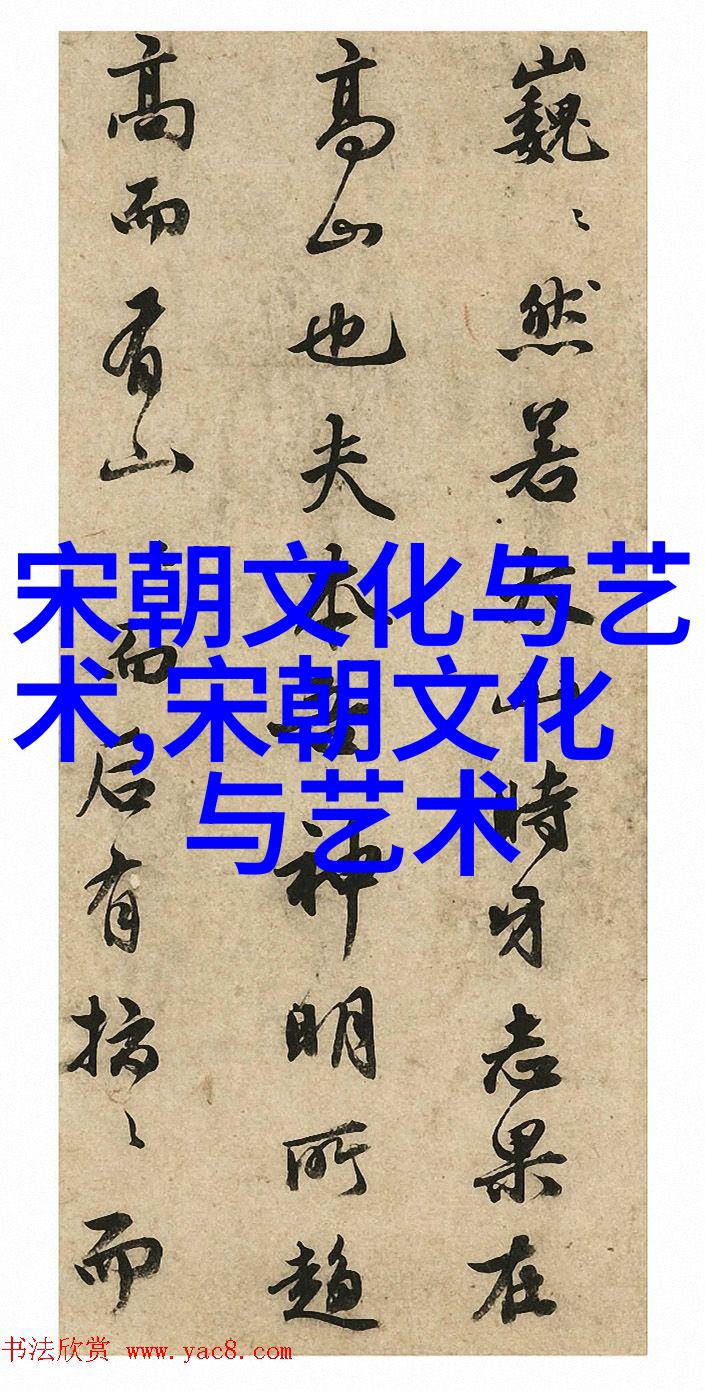 巍〻然若太山時牙志果在
高山也夫本神明所趨
高而有山而后有〻而
宋朝文化与艺
术,宋朝文化
与艺术
书法欣赏 www.yac8.com